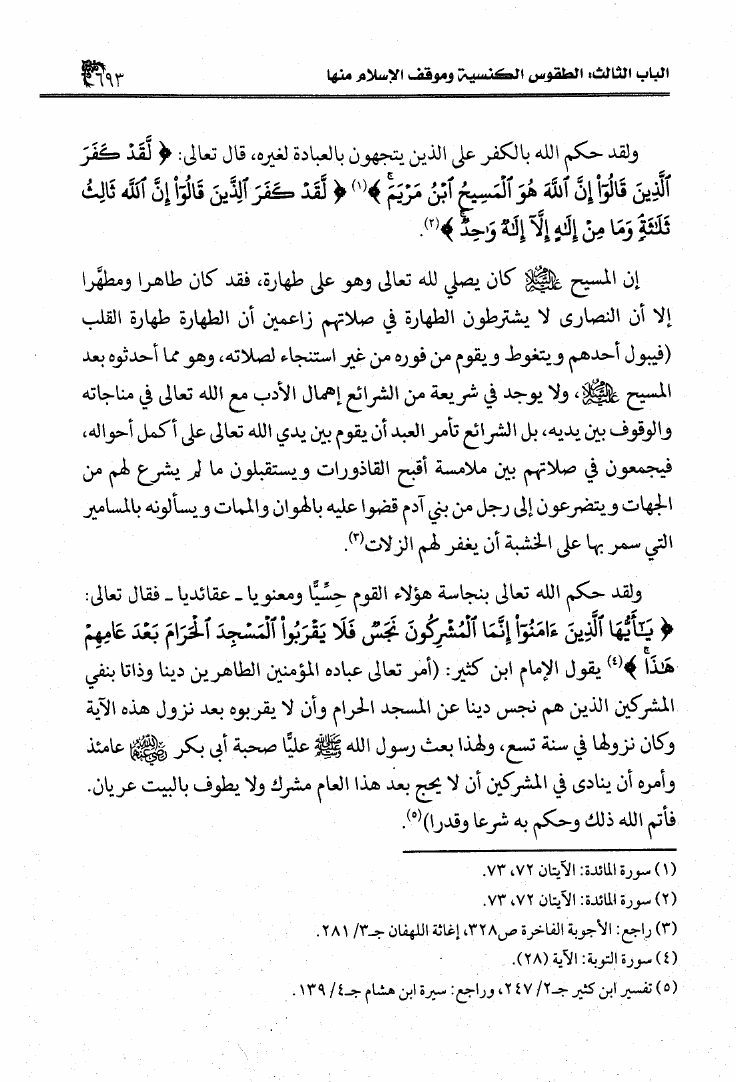 الباب الثالث: الطقوس الكنسية وموقف الإسلام منها ٦٩٣
ولقد حكم الله بالكفر على الذين يتجهون بالعبادة لغيره، قال تعالى: ﴿ لَّقَدْ كَفَرَ
ٱلَّذِينَ قَالُوٓا۟ إِنَّ ٱللَّهَ هُوَ ٱلْمَسِيحُ ٱبْنُ مَرْيَمَ ۚ ﴾(١) ﴿ لَّقَدْ كَفَرَ ٱلَّذِينَ قَالُوٓا۟ إِنَّ ٱللَّهَ ثَالِثُ
ثَلَـٰثَةٍ ۘ وَمَا مِنْ إِلَـٰهٍ إِلَّآ إِلَـٰهٌ وَٰحِدٌ ۚ ﴾(٢).
إن المسيح عليه السلام كان يصلي لله تعالى وهو على طهارة، فقد كان طاهرا ومطهَّرا
إلا أن النصارى لا يشترطون الطهارة في صلاتهم زاعمين أن الطهارة طهارة القلب
(فيبول أحدهم ويتغوط ويقوم من فوره من غير استنجاء لصلاته، وهو مما أحدثوه بعد
المسيح عليه السلام، ولا يوجد في شريعة من الشرائع إهمال الأدب مع الله تعالى في مناجاته
والوقوف بين يديه، بل الشرائع تأمر العبد أن يقوم بين يدي الله تعالى على أكمل أحواله،
فيجمعون في صلاتهم بين ملامسة أقبح القاذورات ويستقبلون ما لم يشرع لهم من
الجهات ويتضرعون إلى رجل من بني آدم قضوا عليه بالهوان والممات ويسألونه بالمسامير
التي سمر بها على الخشبة أن يغفر لهم الزلات(٣).
ولقد حكم الله تعالى بنجاسة هؤلاء القوم حِسِّيًّا ومعنويا ـ عقائديا ـ فقال تعالى:
﴿ يَـٰٓأَيُّهَا ٱلَّذِينَ ءَامَنُوٓا۟ إِنَّمَا ٱلْمُشْرِكُونَ نَجَسٌ فَلَا يَقْرَبُوا۟ ٱلْمَسْجِدَ ٱلْحَرَامَ بَعْدَ عَامِهِمْ
هَـٰذَا ۚ ﴾(٤) يقول الإمام ابن كثير: (أمر تعالى عباده المؤمنين الطاهرين دينا وذاتا بنفي
المشركين الذين هم نجس دينا عن المسجد الحرام وأن لا يقربوه بعد نزول هذه الآية
وكان نزولها في سنة تسع، ولهذا بعث رسول الله ﷺ عليًّا صحبة أبى بكر رضي الله عنهما عامئذ
وأمره أن ينادى في المشركين أن لا يحج بعد هذا العام مشرك ولا يطوف بالبيت عريان.
فأتم الله ذلك وحكم به شرعا وقدرا)(٥).
(١) سورة المائدة: الآيتان ٧٢، ٧٣.
(٢) سورة المائدة: الآيتان ٧٢، ٧٣.
(٣) راجع: الأجوبة الفاخرة ص٣٢٨، إغاثة اللهفان جـ٣/ ٢٨١.
(٤) سورة التوبة: الآية (٢٨).
(٥) تفسير ابن كثير جـ٢/ ٢٤٧، وراجع: سيرة ابن هشام جـ٤/ ١٣٩.